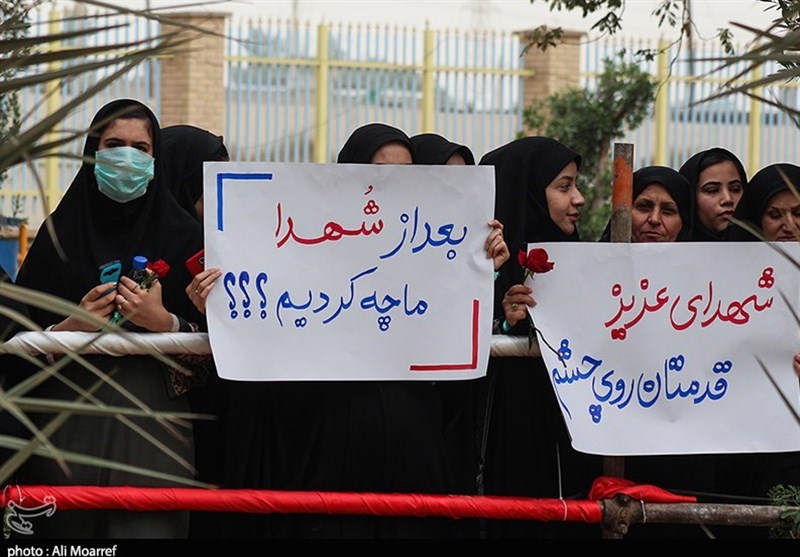 بعد از شُهدا
ما چه کردیم ؟؟؟
شهدای عزیز
قدمتان روی چشم
photo : Ali Moarref